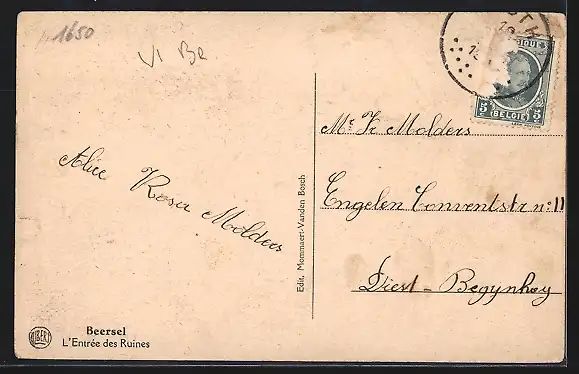 1650
VI Be
BELGIQUE
5 (BELGIE) 5
Mr Fr Molders
Engelen Conventstr n: 11
Diest - Begynhoy
Alice Rosa Molders
Edit. Mommaert-Vanden Bosch
ALBERT
Beersel
L'Entrée des Ruines